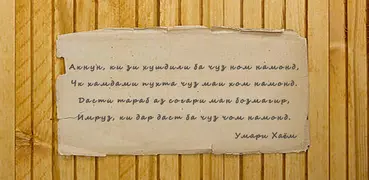 Акнун, ки зи хушдили ба чуз ном намонд,
Чк хамдами пухта чуз маи хом намонд.
Дасти тараб аз согари ман бозмагир,
Имруз, ки дар даст ба чуз чом намонд.
Умари Хаём